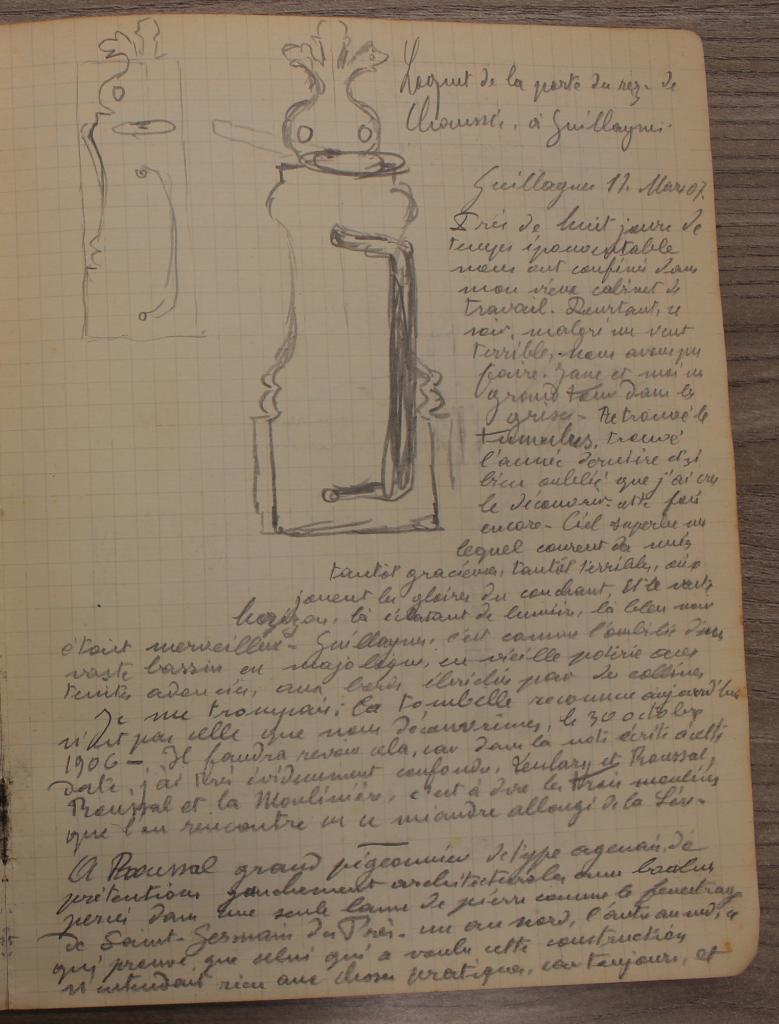 Loquet de la porte du rez-de
Chaussée, à Guillaguès.
Guillaguès 17. Mars 07.
Près de huit jours de
temps épouvantable
nous ont confinés dans
mon vieux cabinet de
travail. Pourtant, ce
soir, malgré un vent
terrible, nous avons pu
faire, Jane et moi un
grand tour dans les
- Retrouvé le
tumulus, trouvé
l'année dernière et si
bien oublié que j'ai cru
le découvrir cette fois
encore - Ciel superbe sur
lequel courent des nués
tantôt gracieuses, tantôt terribles, où
jouent les gloires du couchant, et le vaste
horizon, là éclatant de lumière, là bleu noir
était merveilleux - Guillaguès, c'est comme l'ombilic d'un
vaste bassin en majolique, en vieille poterie aux
teintes adoucies, aux bords ébréchés par des collines
Je me trompais; la tombelle reconnue aujourd'hui
n'est pas celle que nous découvrîmes, le 30 octobre
1906 - Il faudra revoir cela, car dans la note écrite à cette
date, j'ai très évidemment confondu, et Roussal,
Roussal et la Moulinière, c'est à dire les trois moulins
que l'on rencontre en ce méandre allongé de la Lère -
A Roussal grand pigeonnier de type agenais, de
prétentions gauchement architecturales aux
percés dans une seule lame de pierre comme le fenestrage
de Saint-Germain des Prés - un au nord, l'autre au midi, ce
qui prouve que celui qui a voulu cette construction
n'entendait rien aux choses pratiques, car toujours, et